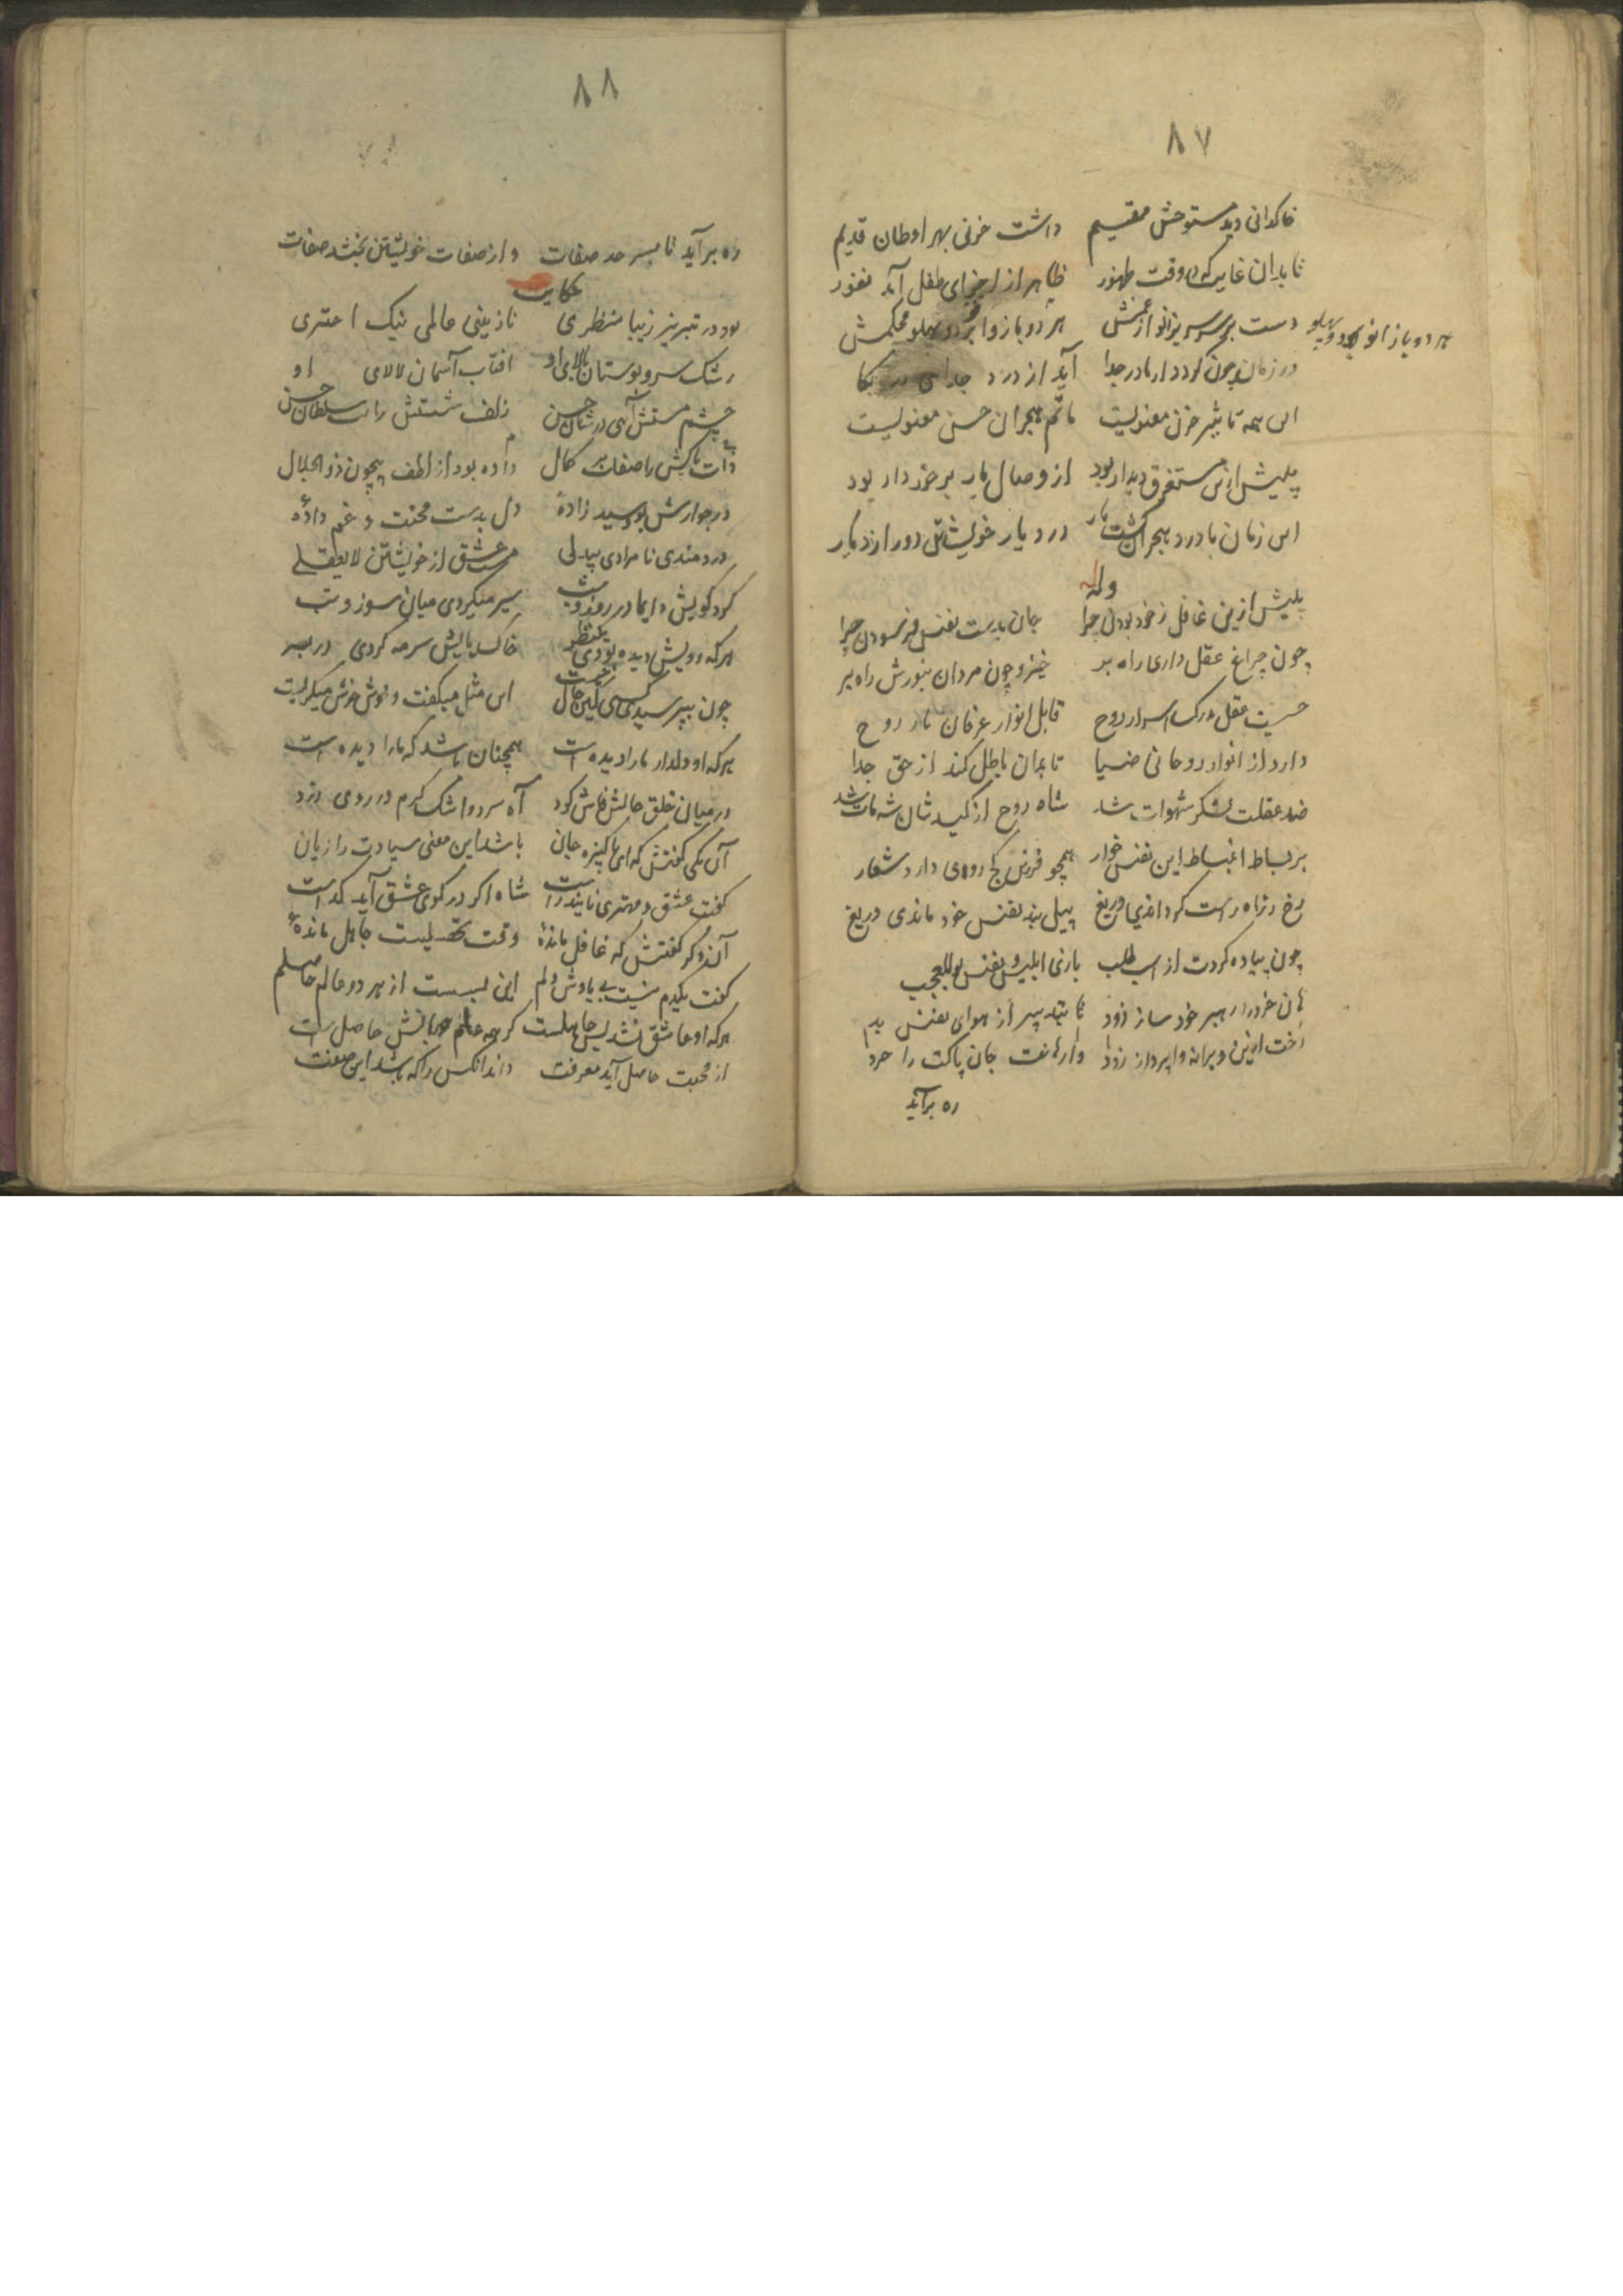 ۸۷
خاکدانی دید مستوحش مقیم داشت حزنی بهر اوطان قدیم
تا بدان غایت که در وقت ظهور ظاهر از اجزای طفل آید نفور
دست بر سر زانو از غمش هر دو بازو بر دو پهلو محکمش
هر دو بازانو بر دو پهلو
در زمان چون گردد از مادر جدا آید از درد جدایی در بکا
این همه تاثیر حزن معنویست ماتم هجران حسن معنویست
پیش ازین مستغرق دیدار بود از وصال یار برخوردار بود
این زمان با درد هجران گشت یار در دیار خویشتن دور از دیار
وله
پیش ازین غافل ز خود بودن چرا جان بدست نفس فرسودن چرا
چون چراغ عقل داری راه بر خیز و چون مردان بنورش راه بر
چیست عقل ادراک اسرار روح قابل انوار عرفان یار روح
دارد از انوار روحانی ضیا تا بدان باطل کند از حق جدا
ضد عقلت لشکر شهوات شد شاه روح از کیدشان شه مات شد
بر بساط انبساط این نفس خوار همچو فرزین کج روی دارد شعار
رخ ز راه راست گرداندی دریغ پیل بند نفس خود ماندی دریغ
چون پیاده کردت از اسب طلب بازی ابلیس و نفس بوالعجب
هان خرد را رهبر خود ساز زود رخت ازین ویرانه واپرداز زود
تا بتدبیر از هوای نفس بد وارهاندت جان پاکت را خرد
ره برآید
۸۸
ره برآید تا بسرحد صفات وز صفات خویشتن بخشد صفات
حکایت
بود در تبریز زیبا منظری نازنینی عالمی نیک اختری
رشک سرو بوستان بالای او آفتاب آسمان لالای او
چشم مستش آهی در شان حسن زلف شستش رایت سلطان حسن
ذات پاکش را صفات بر کمال داده بود از لطف بیچون ذوالجلال
در جوارش بود سید زادهٔ دل بدست محنت و غم دادهٔ
دردمندی نامرادی بیدلی مست عشق از خویشتن لایعقلی
گرد کویش دایما در روز و شب سیر میکردی میان سوز و تب
هرکه رویش دیده بودی یکنظر خاک پایش سرمه کردی در بصر
چون بپرسیدی کسی کین حال چیست این مثل میگفت و خوش خوش میگریست
هرکه او دلدار ما را دیده است همچنان باشد که ما را دیده است
در میان خلق حالش فاش کرد آه سرد و اشک گرم و روی زرد
آن یکی گفتش که ای پاکیزه جان باشد این معنی سیادت را زیان
گفت عشق و مهتری نایند راست شاه اگر در کوی عشق آید گداست
آن دگر گفتش که غافل ماندهٔ وقت تحصیلست جاهل ماندهٔ
گفت یکدم نیست بی یادش دلم این بسست از هر دو عالم حاصلم
هرکه او عاشق نشد پس جاهلست گرچه علم عالمش حاصلست
از محبت حاصل آید معرفت داند آنکس را که باشد این صفت